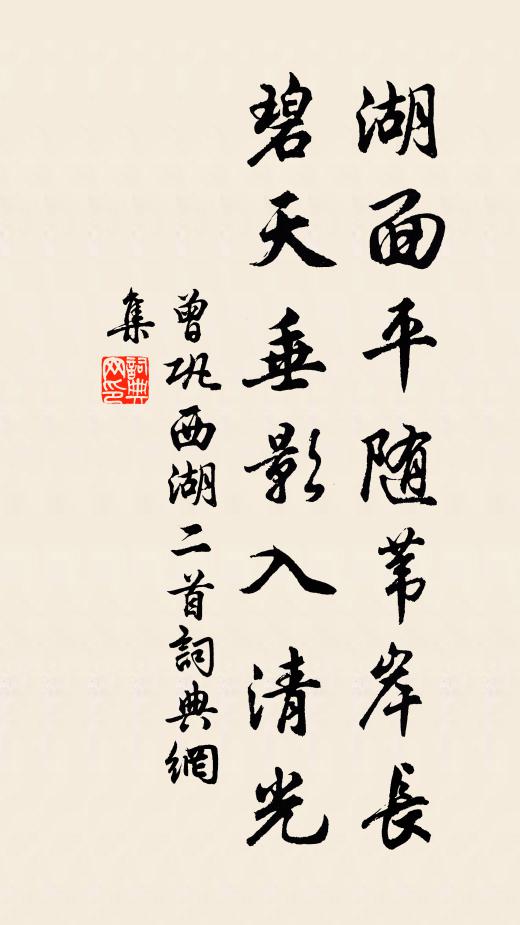 湖面平随苇岸長
碧天垂影入清光
曾巩西湖二首詞典網
集
詞典
网印